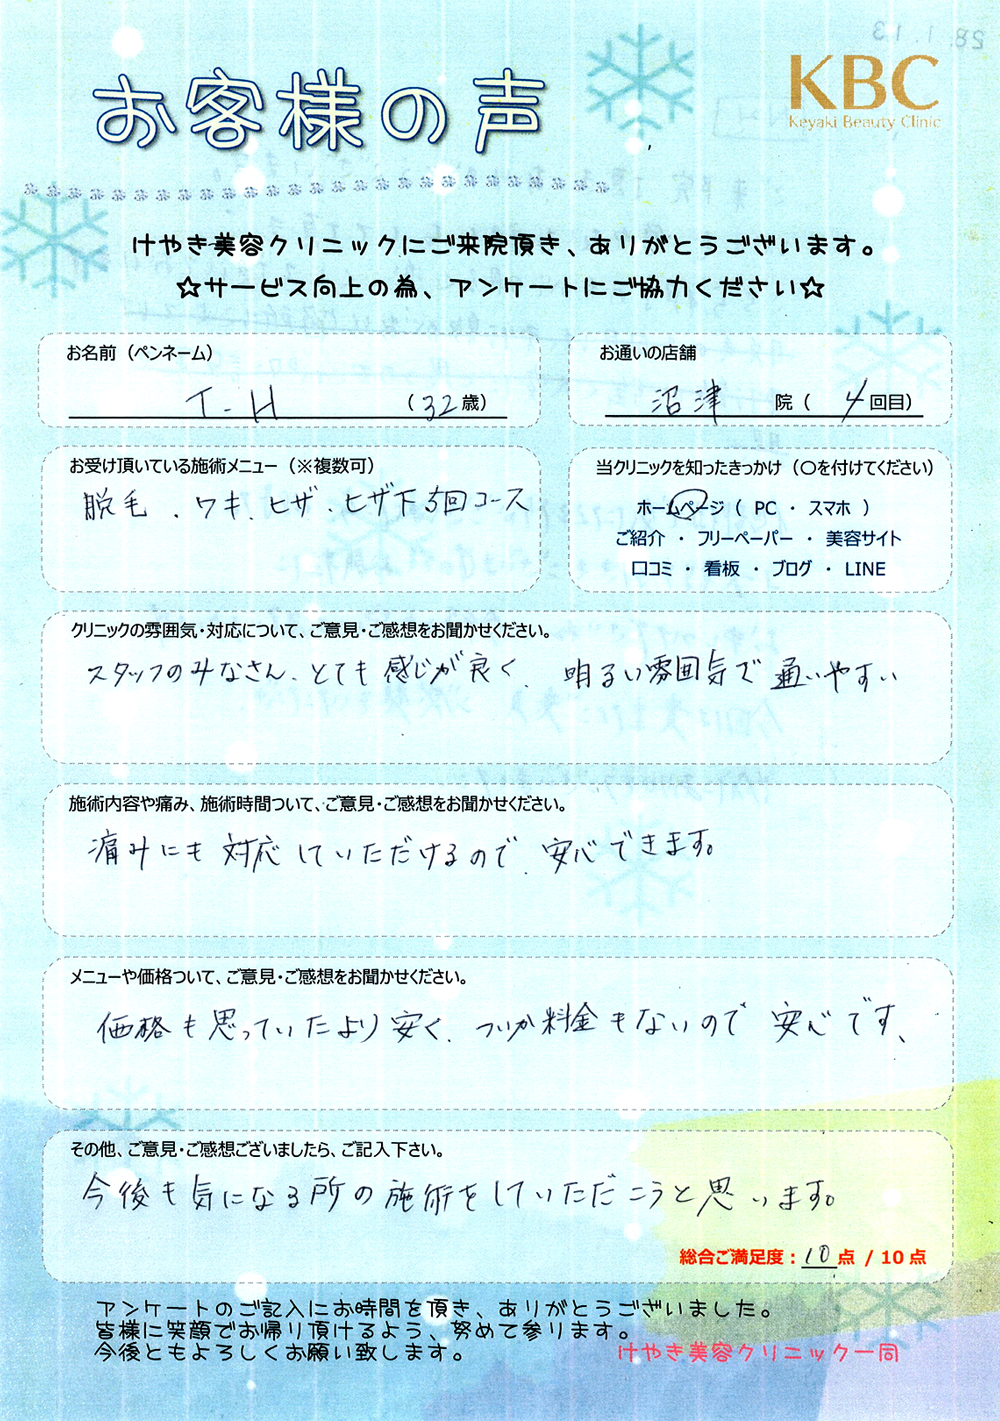 お客様の声
KBC
Keyaki Beauty Clinic
けやき美容クリニックにご来院頂き、ありがとうございます。
☆サービス向上の為、アンケートにご協力ください☆
お名前（ペンネーム）
T-H （32歳）
お通いの店舗
沼津 院（4回目）
お受け頂いている施術メニュー（※複数可）
脱毛、ワキ、ヒザ、ヒザ下5回コース
当クリニックを知ったきっかけ（〇を付けてください）
ホームページ（ PC ・ スマホ ）
ご紹介 ・ フリーペーパー ・ 美容サイト
口コミ ・ 看板 ・ ブログ ・ LINE
クリニックの雰囲気・対応について、ご意見・ご感想をお聞かせください。
スタッフのみなさん、とても感じが良く、明るい雰囲気で通いやすい
施術内容や痛み、施術時間ついて、ご意見・ご感想をお聞かせください。
痛みにも対応していただけるので、安心できます。
メニューや価格ついて、ご意見・ご感想をお聞かせください。
価格も思っていたより安く、ついか料金もないので安心です、
その他、ご意見・ご感想ございましたら、ご記入下さい。
今後も気になる所の施術をしていただこうと思います。
総合ご満足度：10点 / 10点
アンケートのご記入にお時間を頂き、ありがとうございました。
皆様に笑顔でお帰り頂けるよう、努めて参ります。
今後ともよろしくお願い致します。
けやき美容クリニック一同